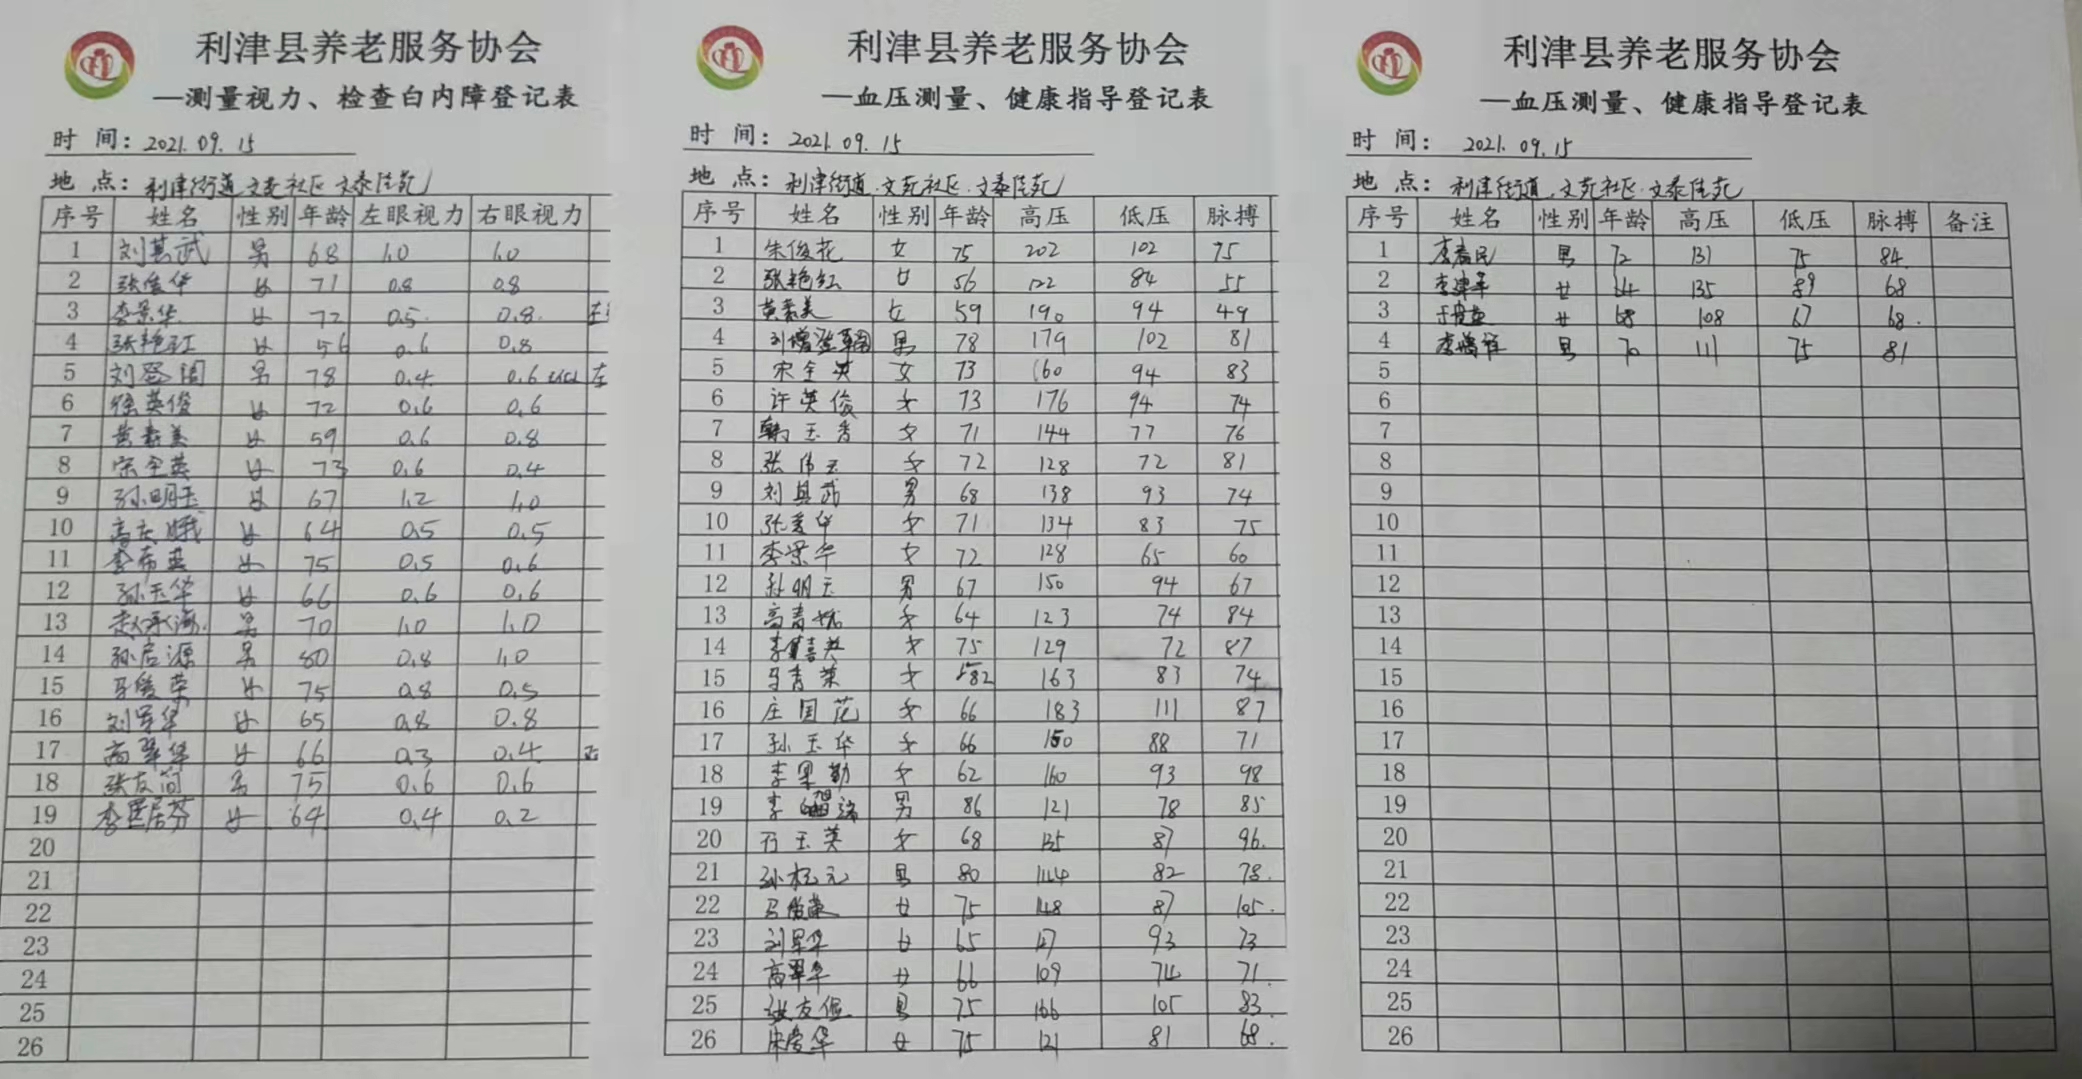 利津县养老服务协会
—测量视力、检查白内障登记表
时 间：2021.09.15
地 点：利津街道文苑社区文泰佳苑
序号 姓名 性别 年龄 左眼视力 右眼视力
1 刘其武 男 68 1.0 1.0
2 张爱华 女 71 0.8 0.8
3 李景华 女 72 0.5 0.8
4 张艳红 女 56 0.6 0.8
5 刘 男 78 0.4 0.6 左
6 徐英俊 女 72 0.6 0.6
7 黄素美 女 59 0.6 0.8
8 宋全英 女 73 0.6 0.4
9 孙明玉 女 67 1.2 1.0
10 高 娥 女 64 0.5 0.5
11 李希英 女 75 0.5 0.6
12 孙玉华 女 66 0.6 0.6
13 赵承海 男 70 1.0 1.0
14 孙启源 男 80 0.8 1.0
15 马俊荣 女 75 0.8 0.5
16 刘军华 女 65 0.8 0.8
17 高翠华 女 66 0.3 0.4
18 张友 男 75 0.6 0.6
19 李 芬 女 64 0.4 0.2
20
21
22
23
24
25
26
利津县养老服务协会
—血压测量、健康指导登记表
时 间：2021.09.15
地 点：利津街道.文苑社区.文泰佳苑
序号 姓名 性别 年龄 高压 低压 脉搏
1 朱俊花 女 75 202 102 75
2 张艳红 女 56 122 84 55
3 黄素美 女 59 190 94 49
4 刘 男 78 179 102 81
5 宋全英 女 73 160 94 83
6 许英俊 女 73 176 94 74
7 韩玉香 女 71 144 77 76
8 张伟玉 女 72 128 72 81
9 刘其武 男 68 138 93 74
10 张爱华 女 71 134 83 75
11 李景华 女 72 128 65 60
12 孙明玉 男 67 150 94 67
13 高青 女 64 123 74 84
14 李 英 女 75 129 72 87
15 马青莱 女 82 163 83 74
16 庄国花 女 66 183 111 87
17 孙玉华 女 66 150 88 71
18 李果勤 女 62 160 93 98
19 李 男 86 121 78 85
20 玉英 女 68 135 87 96.
21 孙 元 男 80 144 82 78.
22 马俊荣 女 75 148 87 105.
23 刘军华 女 65 127 93 73
24 高翠华 女 66 109 74 71.
25 张友 男 75 166 105 83.
26 宋爱华 女 75 121 81 68.
利津县养老服务协会
—血压测量、健康指导登记表
时 间： 2021.09.15
地 点：利津街道.文苑社区.文泰佳苑
序号 姓名 性别 年龄 高压 低压 脉搏 备注
1 李 民 男 72 131 75 84.
2 李 女 64 135 89 68
3 于 女 68 108 67 68.
4 李 祥 男 70 111 75 81
5
6
7
8
9
10
11
12
13
14
15
16
17
18
19
20
21
22
23
24
25
26